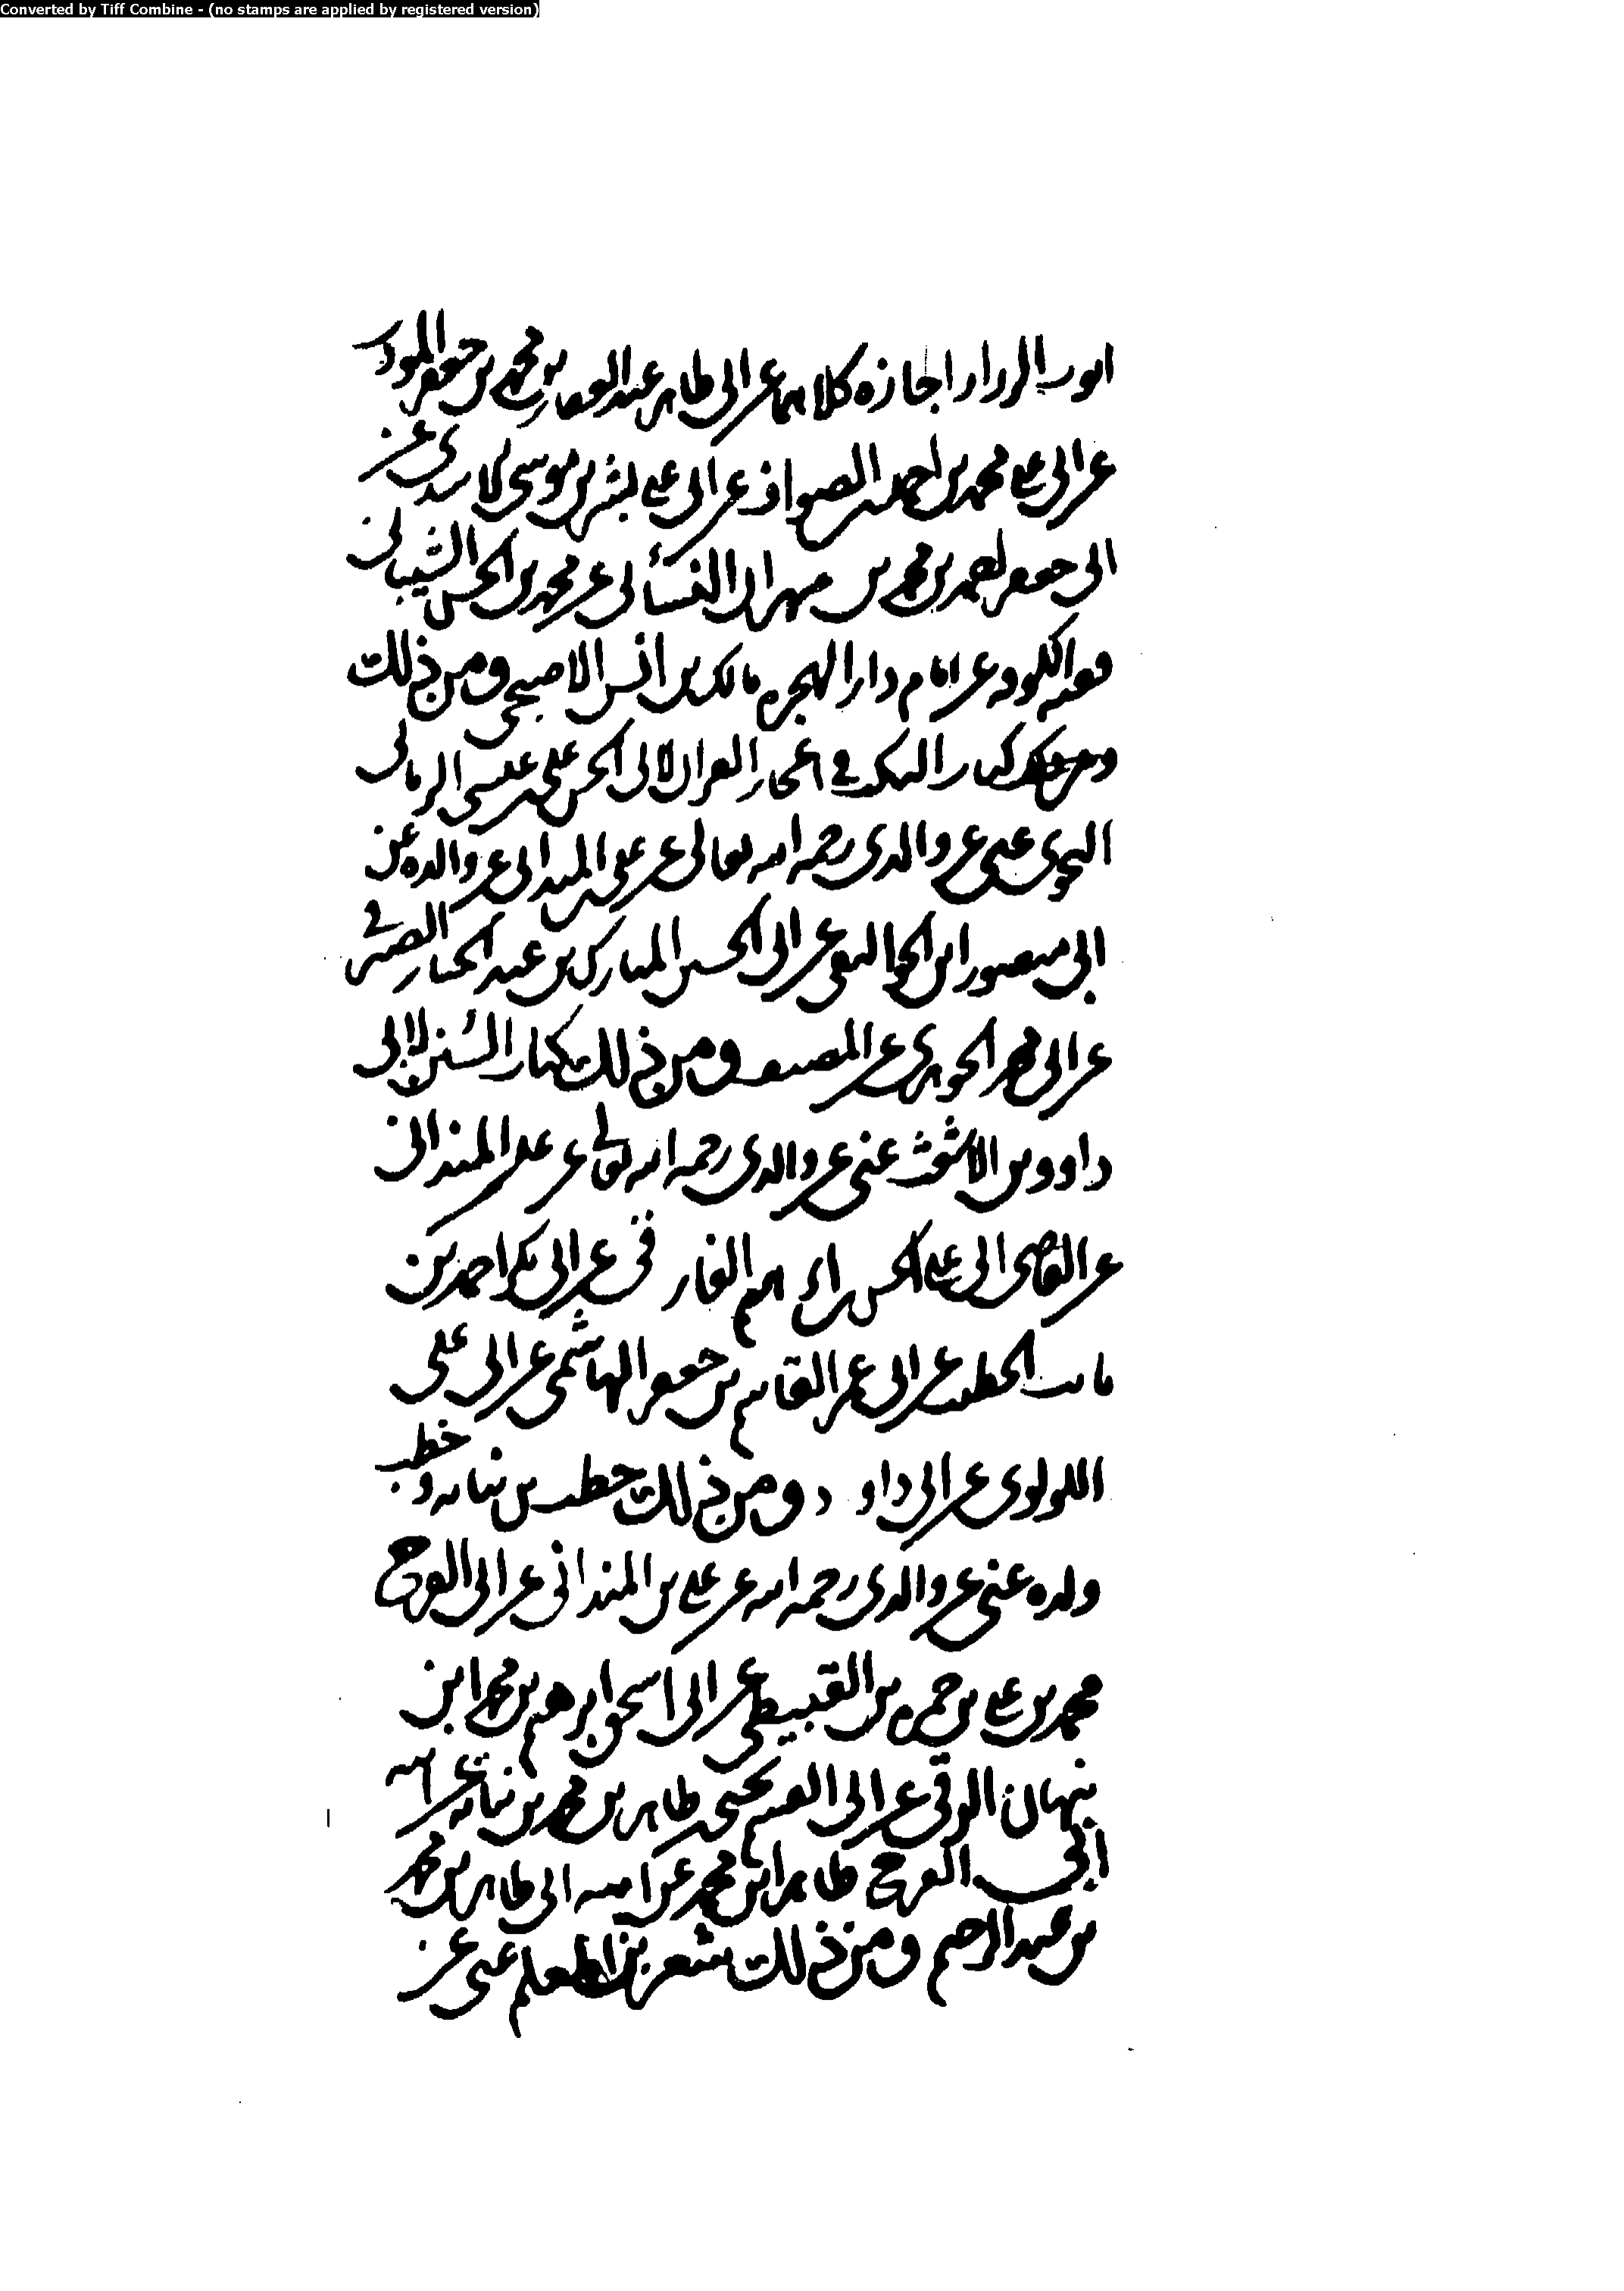 Converted by Tiff Combine - (no stamps are applied by registered version)
اجازه كلاهما عن ابى طاهر عبد الغفار بن محمد بن جعفر المودب
عن ابى على محمد بن احمد بن الصواف عن ابى على بشر بن موسى الاسدى عن
ابى جعفر احمد بن محمد بن مهران النسائى عن محمد بن الحسن الشيبانى
فقيه الكوفه عن امام دار الهجره مالك بن انس الاصبحى ومن ذلك
ومن ذلك كتاب النكت فى اعجاز القران لابى الحسن على بن عيسى الرمانى
النحوى عنى عن والدى رحمه الله تعالى عن على بن المندائى عن والده عن
ابى منصور ابن الجواليقى عن ابى الحسين المبارك بن عبد الجبار الصيرفى
عن ابى محمد الجوهرى عن المصنف ومن ذلك كتاب السنن لابى
داوود بن الاشعث عنى عن والدى رحمه الله تعالى عن على بن المندائى
عن القاضى ابى على الحسن بن ابراهيم الفارقى عن ابى بكر احمد بن
ثابت الخطيب عن ابى عمر القاسم بن جعفر الهاشمى عن ابى على
اللولوى عن ابى داود ومن ذلك خطب بن نباته وخطب
ولده عنى عن والدى رحمه الله عن على بن المندائى عن ابى الفرج
محمد بن على بن حمزه بن القبيطى عن ابى اسحق ابرهيم بن محمد ابن
نبهان الرقى عن ابى القسم يحيى بن طاهر بن محمد بن نباته عن ابيه
ابى الفرج طاهر ابن محمد عن ابيه ابى طاهر بن محمد
بن عبد الرحيم ومن ذلك شعر بن المعلم عنى عن